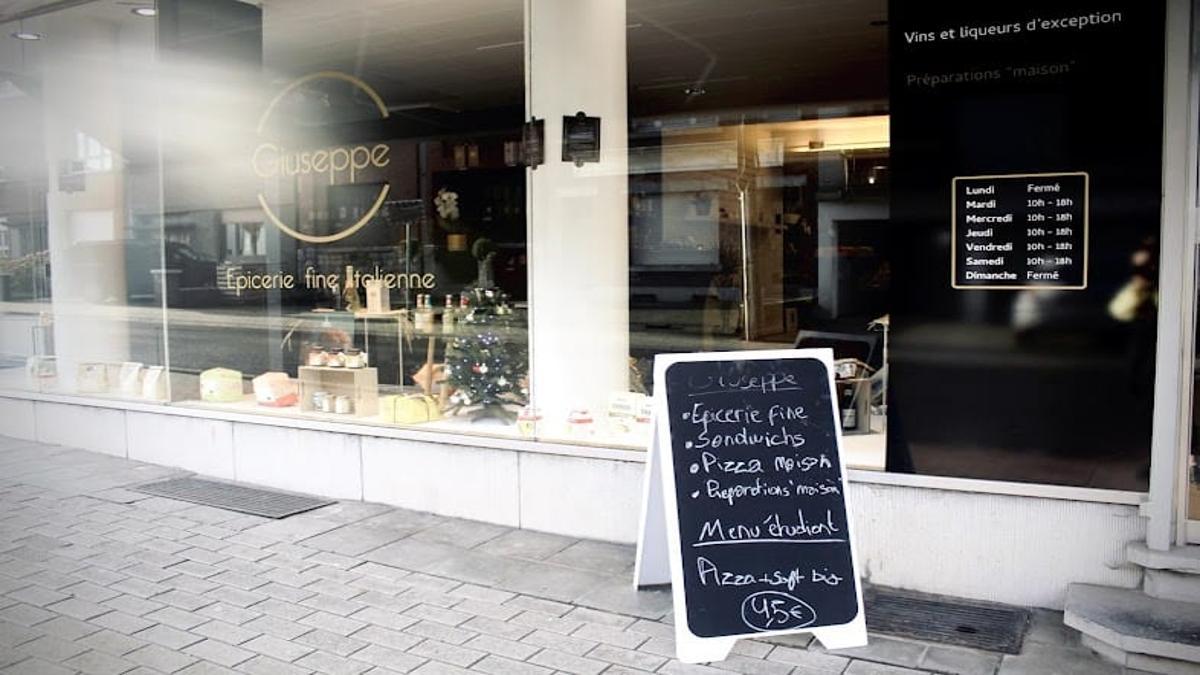 Giuseppe
Epicerie fine Italienne
Vins et liqueurs d'exception
Préparations "maison"
Lundi Fermé
Mardi 10h - 18h
Mercredi 10h - 18h
Jeudi 10h - 18h
Vendredi 10h - 18h
Samedi 10h - 18h
Dimanche Fermé
Giuseppe
• Epicerie fine
• Sandwichs
• Pizza maison
• Preparations "maison"
Menu étudiant
Pizza + soft bio
4,5€